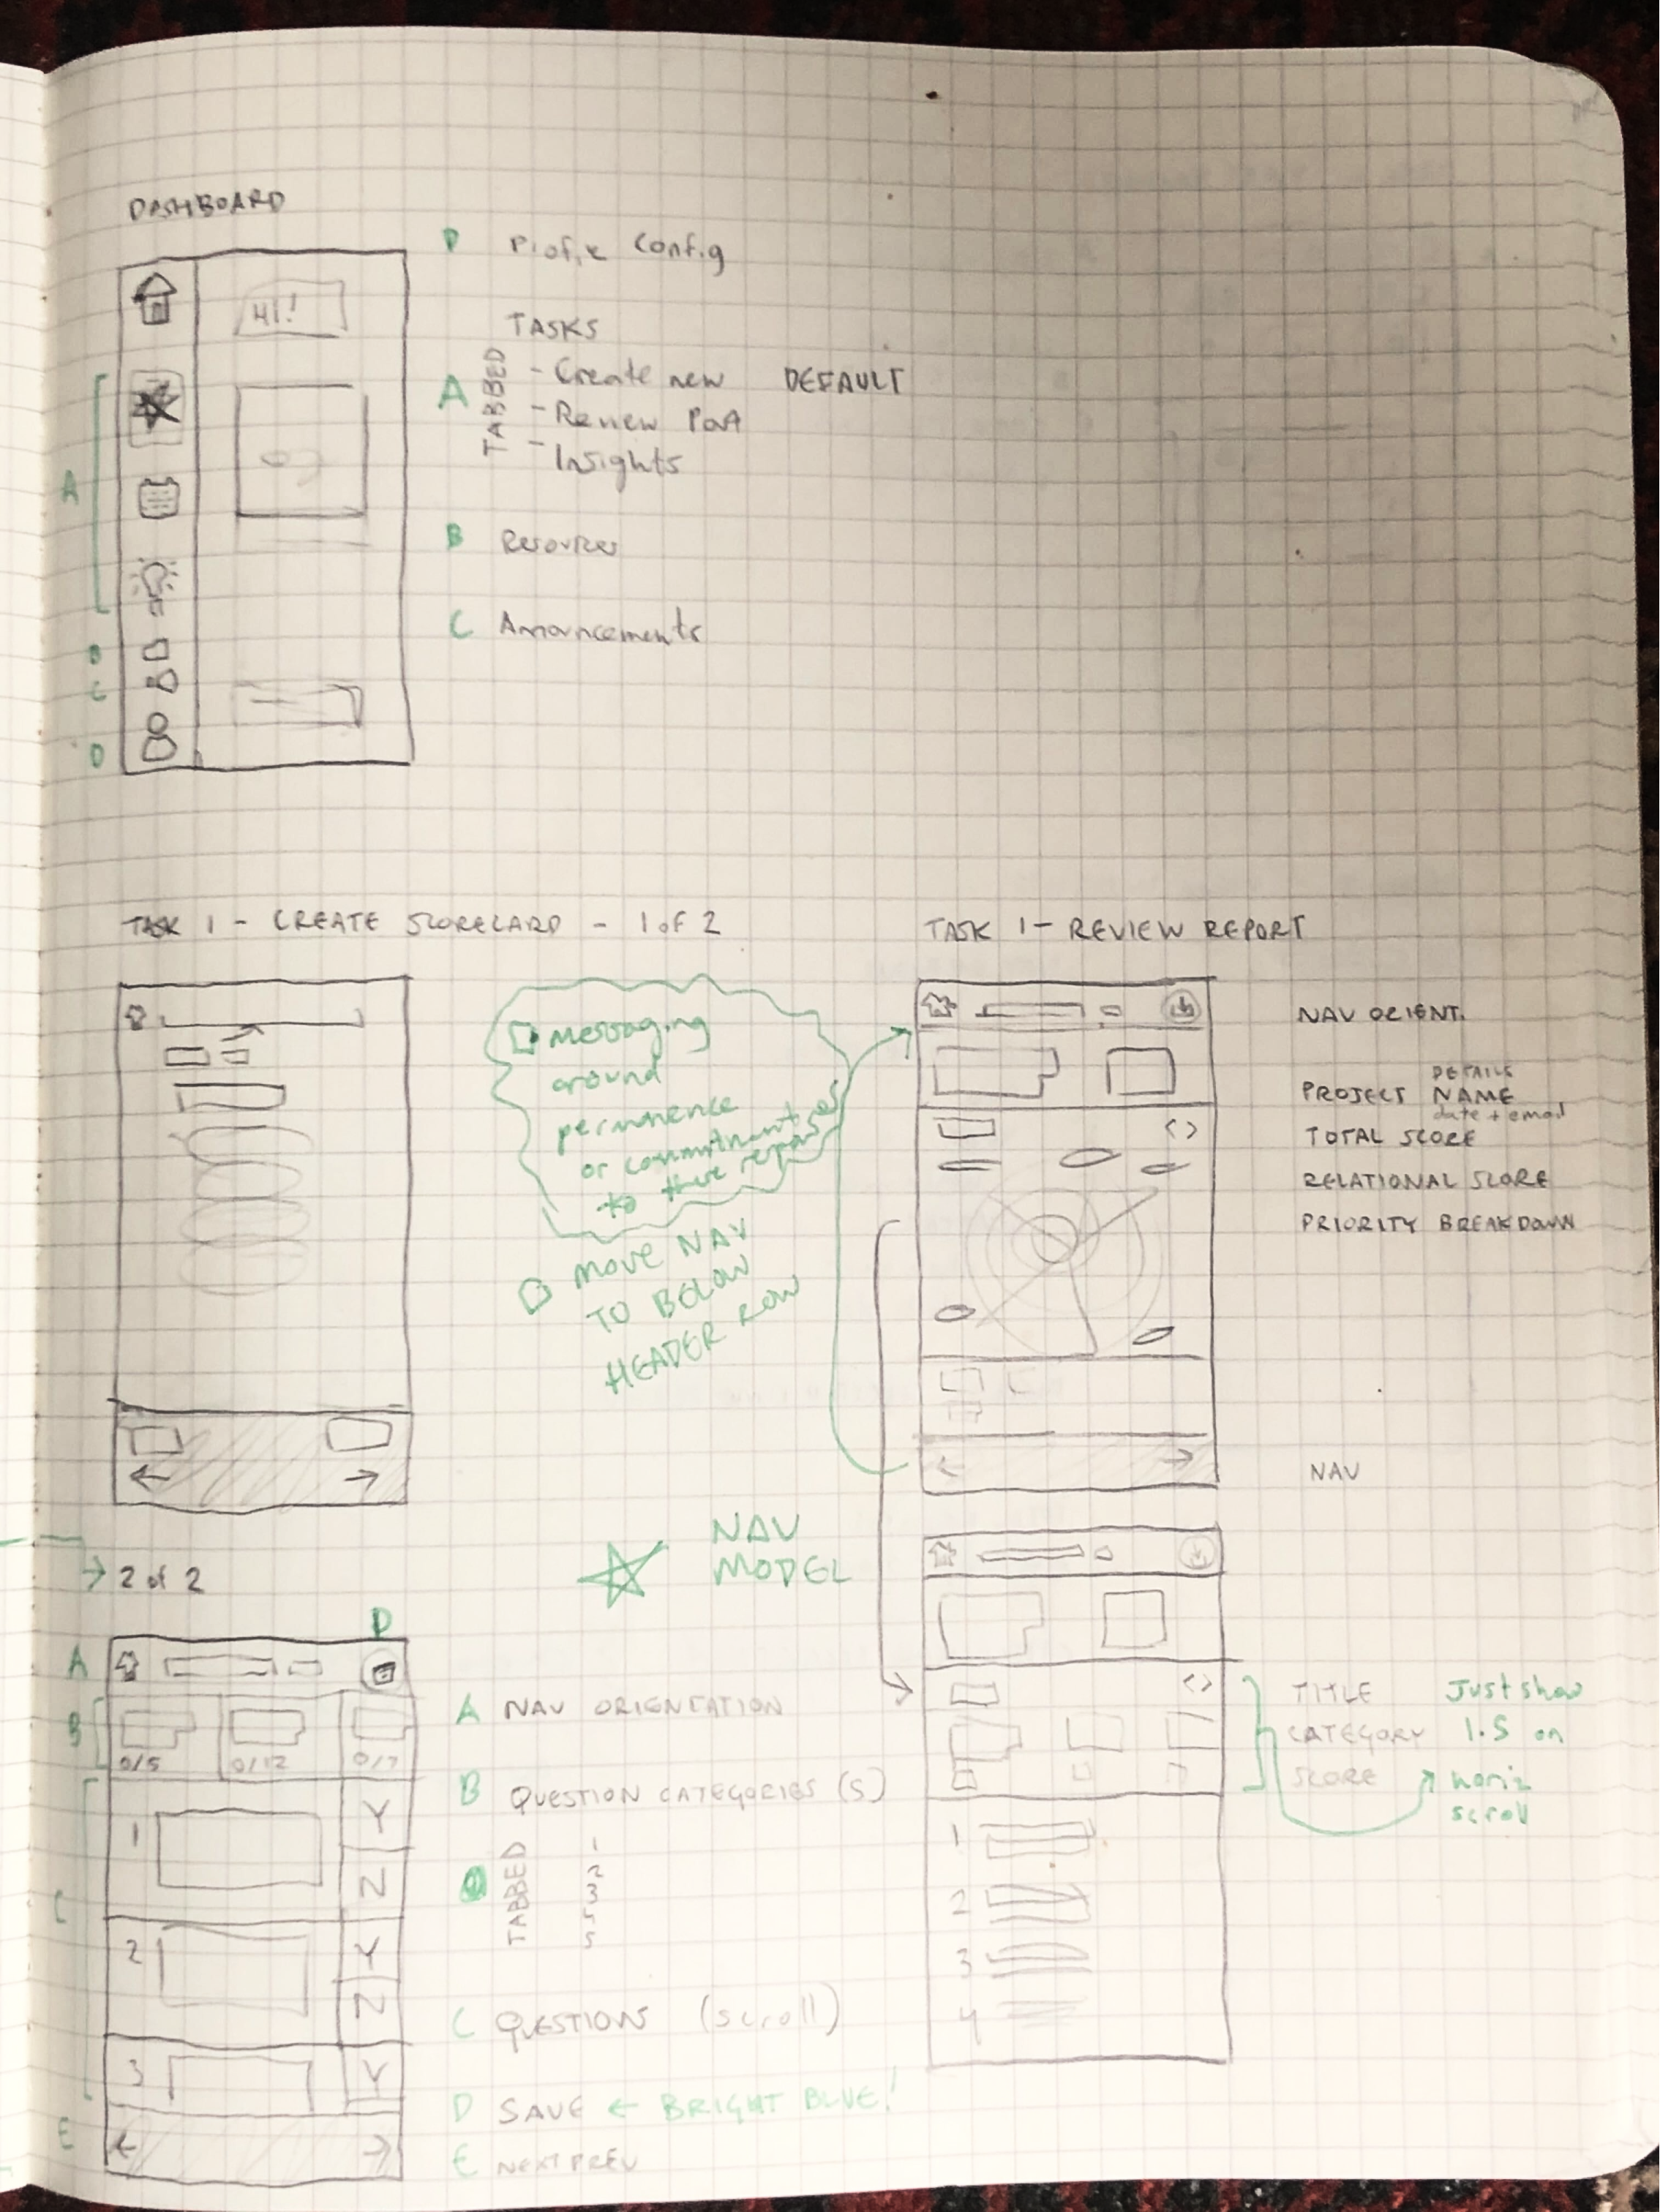 DASHBOARD
HI!
A
B
C
D
D Profile Config
TASKS
A TABBED
- Create new DEFAULT
- Review PoA
- Insights
B Resources
C Announcements
TASK 1 - CREATE SCORECARD - 1 of 2
messaging
around
permanence
or commitment
to these
MOVE NAV
TO BELOW
HEADER ROW
TASK 1 - REVIEW REPORT
NAV ORIENT.
DETAILS
PROJECT NAME
date + email
TOTAL SCORE
RELATIONAL SCORE
PRIORITY BREAKDOWN
NAV
< >
NAV
MODEL
2 of 2
D
A
B
0/5 0/12 0/7
C
1 Y
N
2 Y
N
3 Y
E
A NAV ORIENTATION
B QUESTION CATEGORIES (5)
TABBED
1
2
3
5
5
C QUESTIONS (scroll)
D SAVE ← BRIGHT BLUE!
E NEXT PREV
< >
1
2
3
4
TITLE
CATEGORY
SCORE
Just show
1.5 on
horiz
scroll